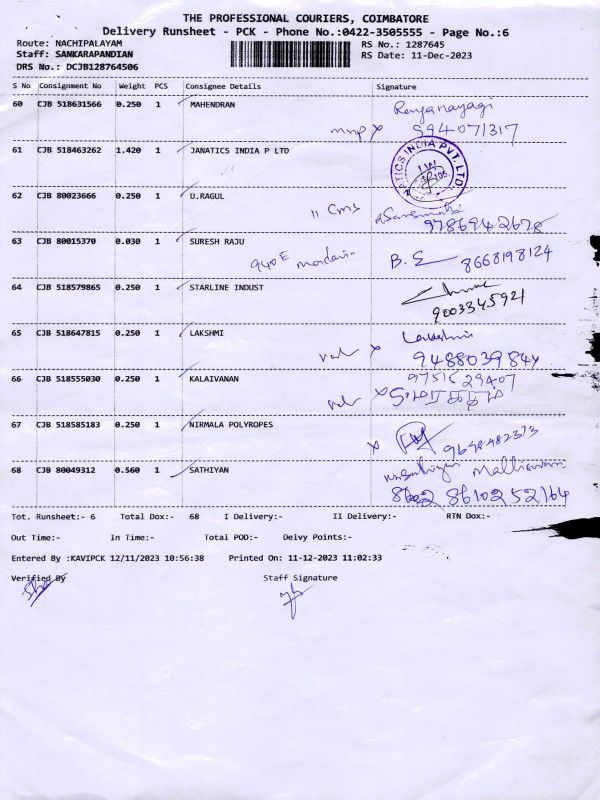 THE PROFESSIONAL COURIERS, COIMBATORE
Delivery Runsheet - PCK - Phone No.:0422-3505555 - Page No.:6
Route: NACHIPALAYAM RS No.: 1287645
Staff: SANKARAPANDIAN RS Date: 11-Dec-2023
DRS No.: DCJB128764506
S No Consignment No Weight PCS Consignee Details Signature
60 CJB 518631566 0.250 1 MAHENDRAN Renganayagi
994071317
61 CJB 518463262 1.420 1 JANATICS INDIA P LTD
62 CJB 80023666 0.250 1 U.RAGUL
11 cms
9786942678
63 CJB 80015370 0.030 1 SURESH RAJU
940E B. E 8668198124
64 CJB 518579865 0.250 1 STARLINE INDUST
9003345921
65 CJB 518647815 0.250 1 LAKSHMI Lakshmi
x 9488039844
66 CJB 518555030 0.250 1 KALAIVANAN 9751529407
67 CJB 518585183 0.250 1 NIRMALA POLYROPES
x 9698482373
68 CJB 80049312 0.560 1 SATHIYAN
8610252164
Tot. Runsheet:- 6 Total Dox:- 68 I Delivery:- II Delivery:- RTN Dox:-
Out Time:- In Time:- Total POD:- Delvy Points:-
Entered By :KAVIPCK 12/11/2023 10:56:38 Printed On: 11-12-2023 11:02:33
Verified By Staff Signature